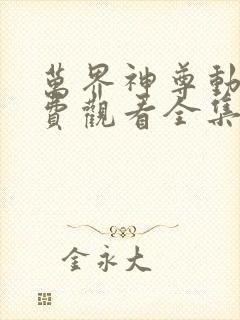 萬界神尊動
費觀看全集
金永大